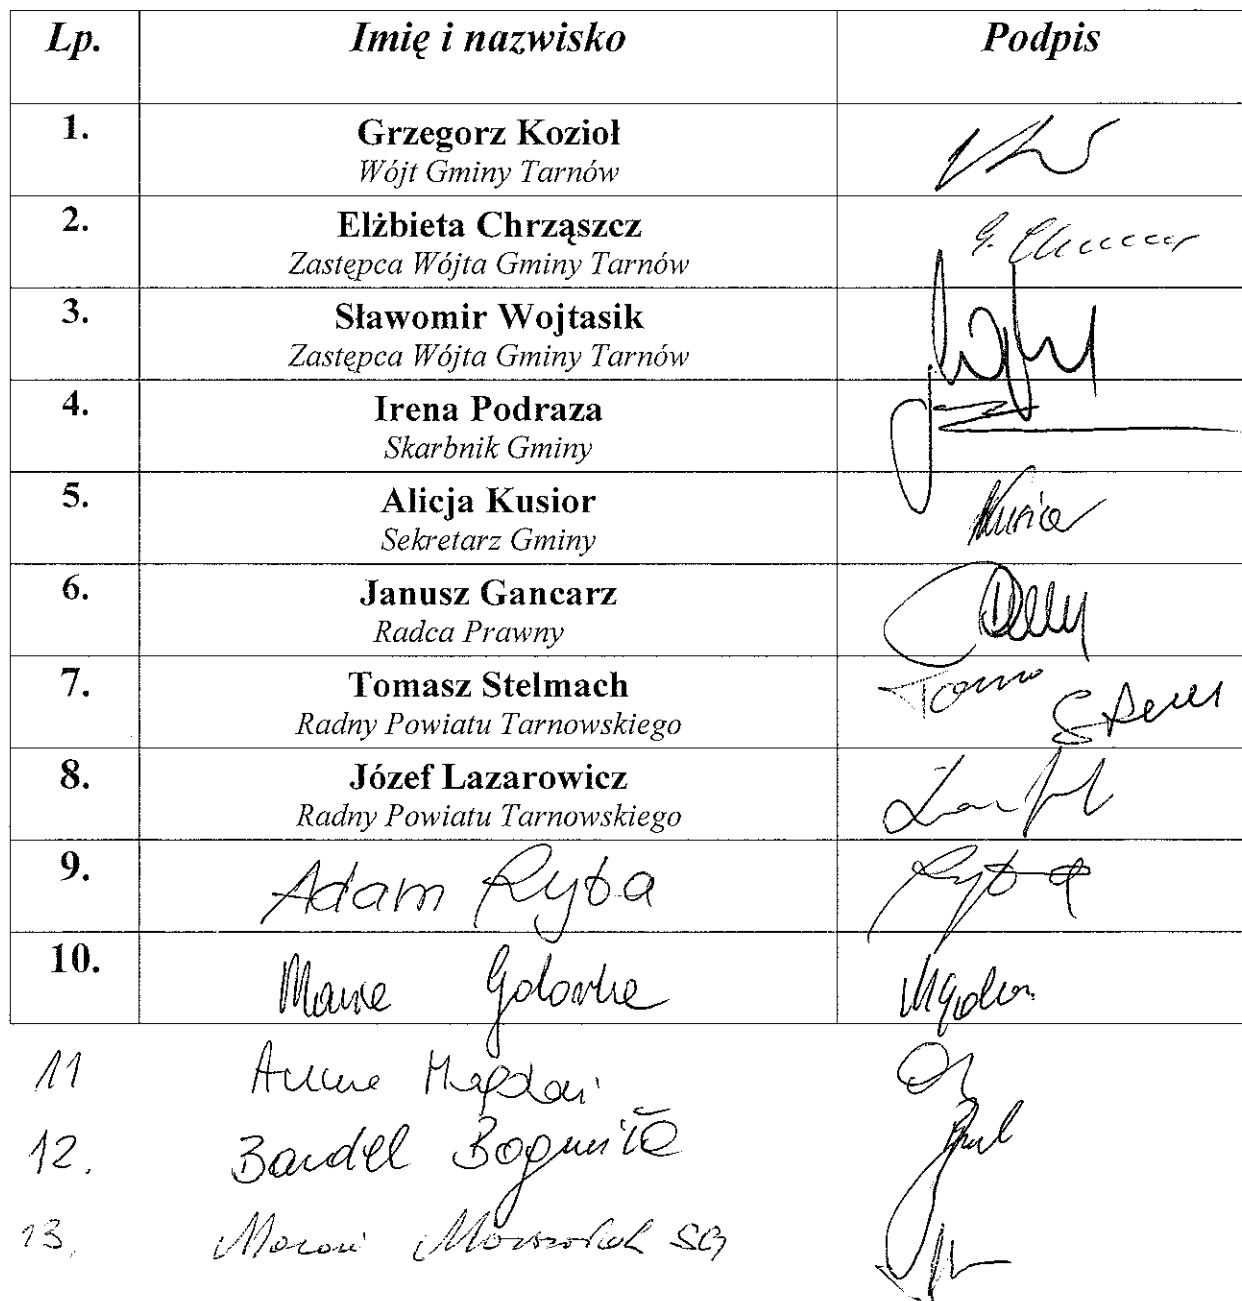 Lp. Imię i nazwisko Podpis
1. Grzegorz Kozioł
Wójt Gminy Tarnów
2. Elżbieta Chrząszcz
Zastępca Wójta Gminy Tarnów
3. Sławomir Wojtasik
Zastępca Wójta Gminy Tarnów
4. Irena Podraza
Skarbnik Gminy
5. Alicja Kusior Kusior
Sekretarz Gminy
6. Janusz Gancarz
Radca Prawny
7. Tomasz Stelmach
Radny Powiatu Tarnowskiego
8. Józef Lazarowicz
Radny Powiatu Tarnowskiego
9. Adam Ryba Ryba
10.
11
12. Bardel Bogumiła
13.